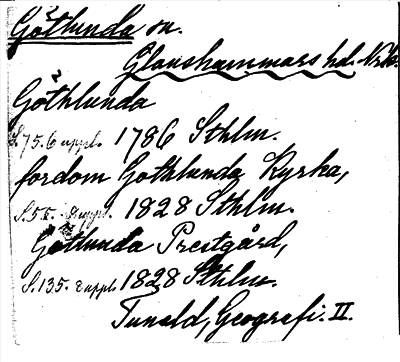 Götlunda sn.
Glanshammars hd. Nrke.
Göthlunda
S. 75. 6 uppl. 1786 Sthlm.
fordom Gothlunda Kyrka,
S. 55. 8 uppl. 1828 Sthlm.
Götlunda Prestgård,
S. 135. 8 uppl. 1828 Sthlm.
Tuneld, Geografi. II.